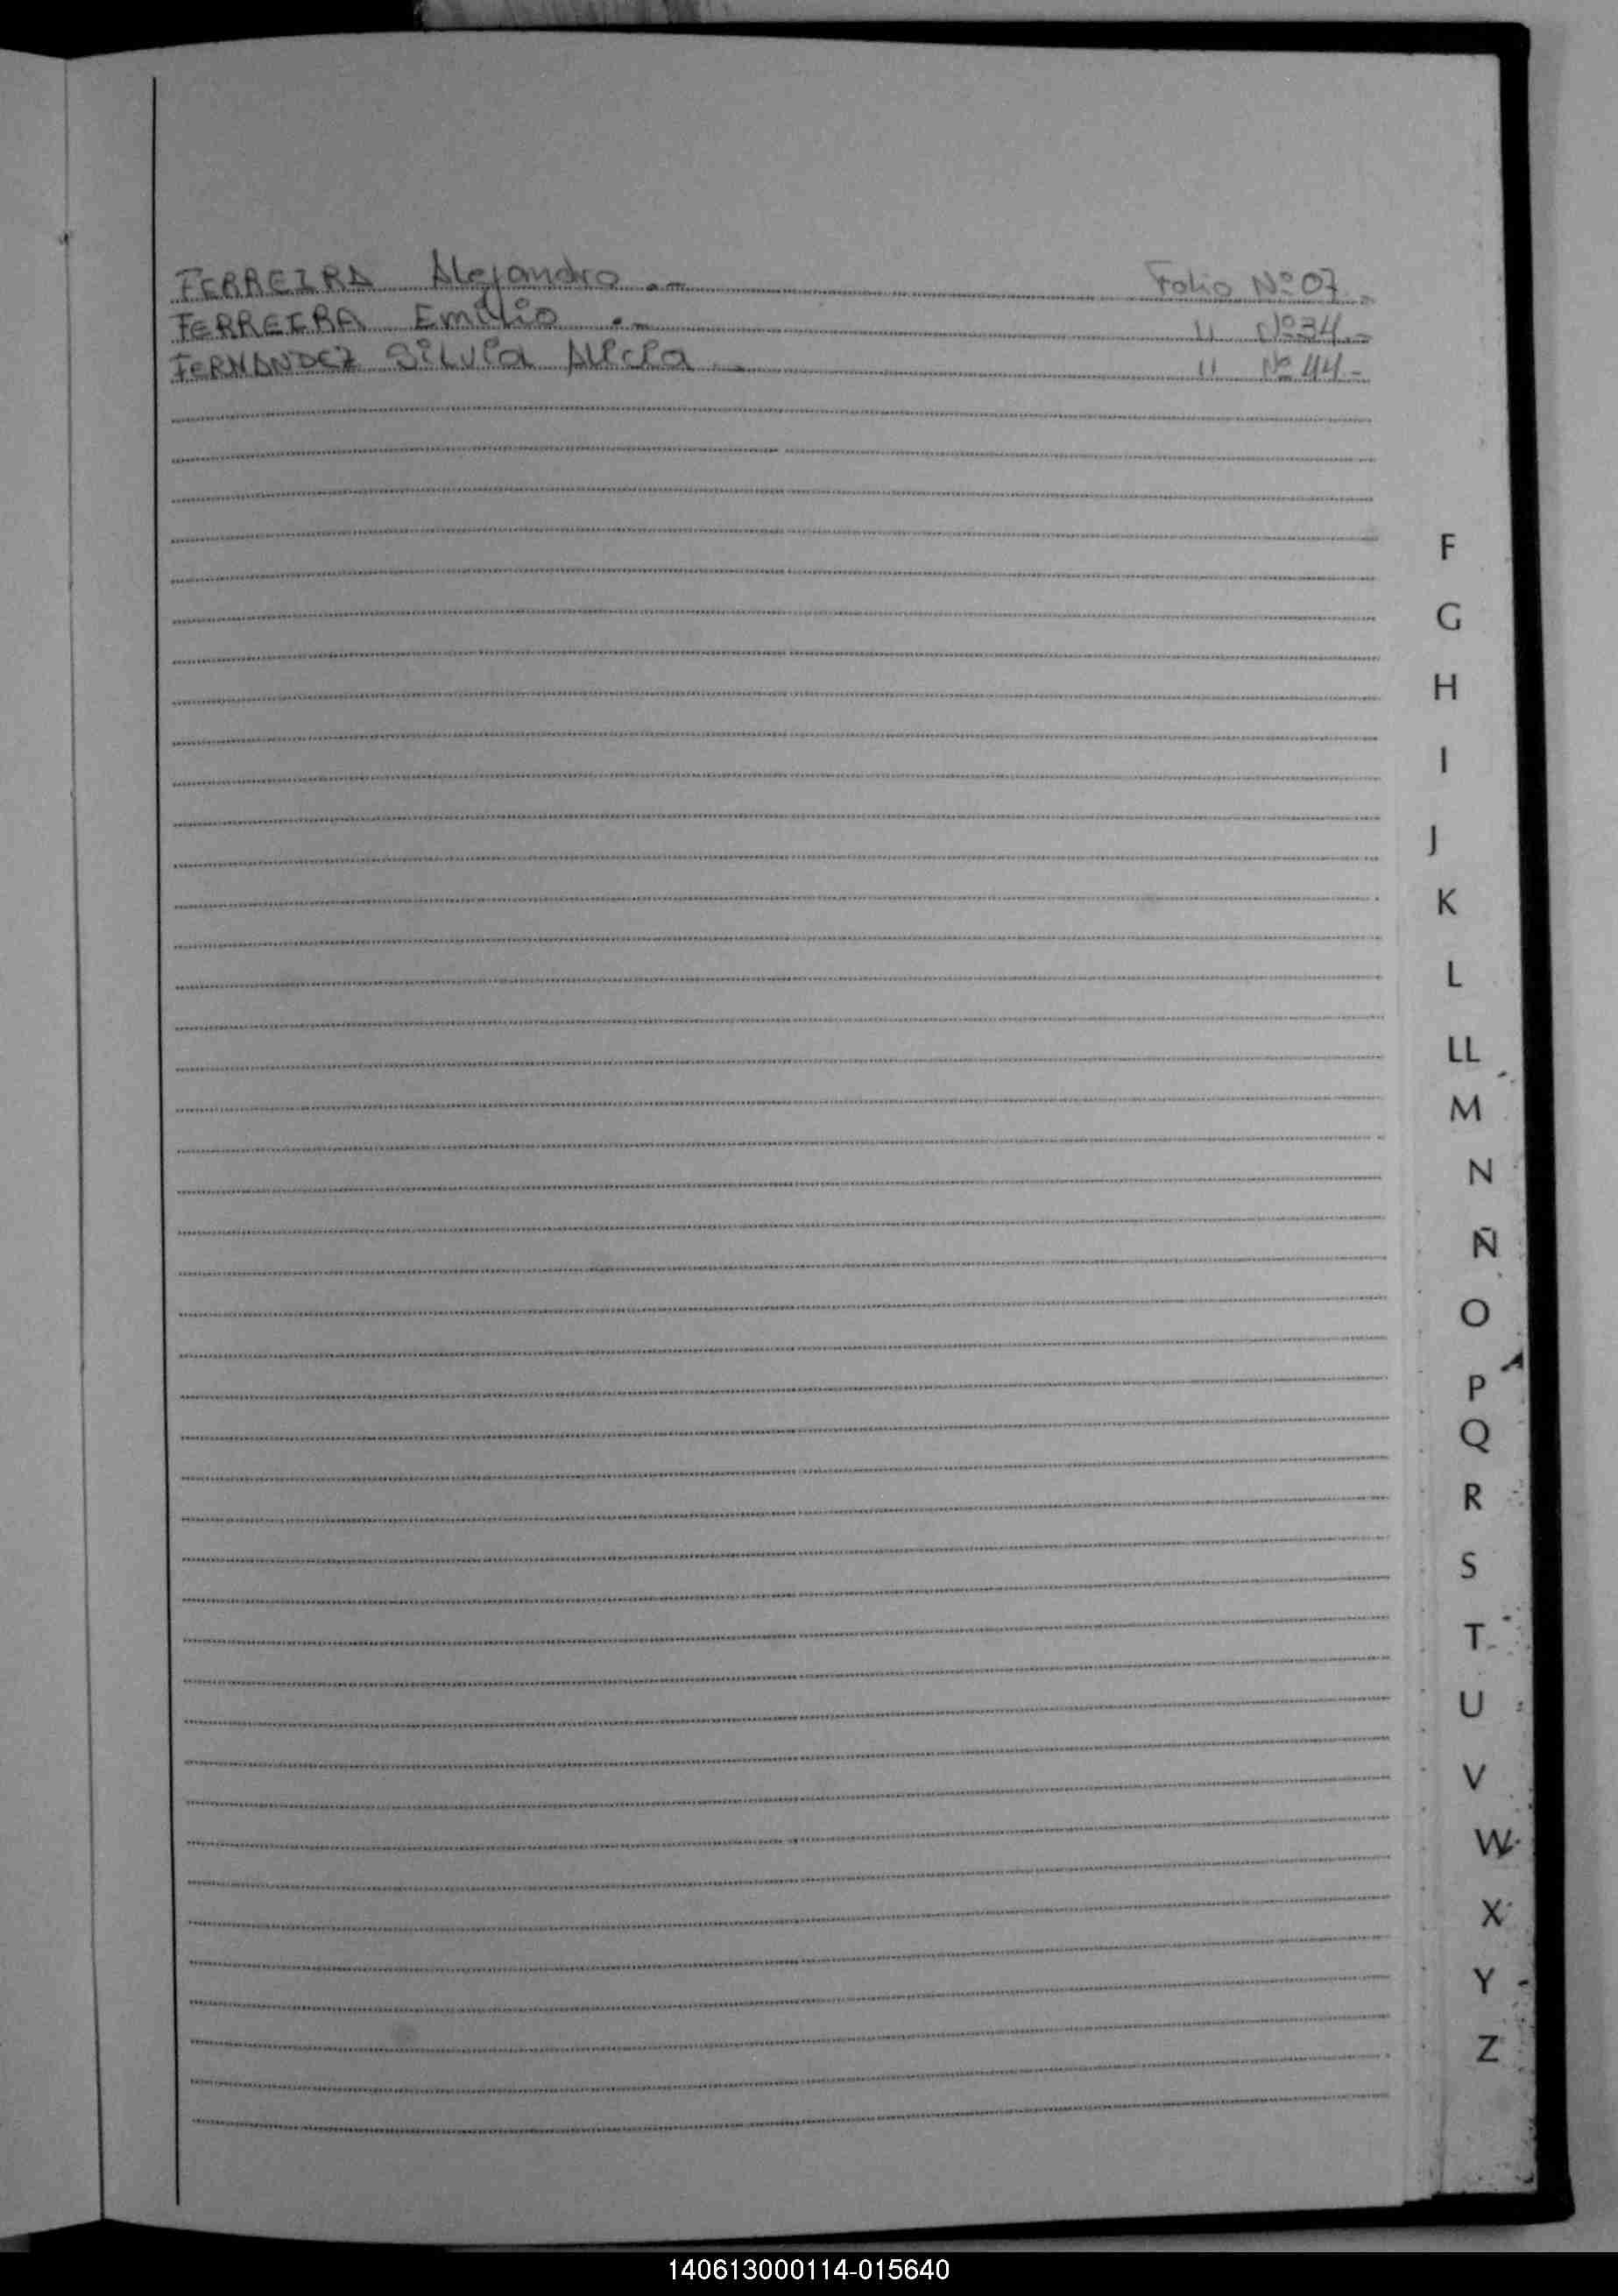 FERREIRA Alejandro .- Folio Nº 07.-
FERREIRA Emilio .- " Nº 34.-
FERNANDEZ Silvia Alicia .- " Nº 44.-
F
G
H
I
J
K
L
LL
M
N
Ñ
O
P
Q
R
S
T
U
V
W
X
Y
Z
140613000114-015640